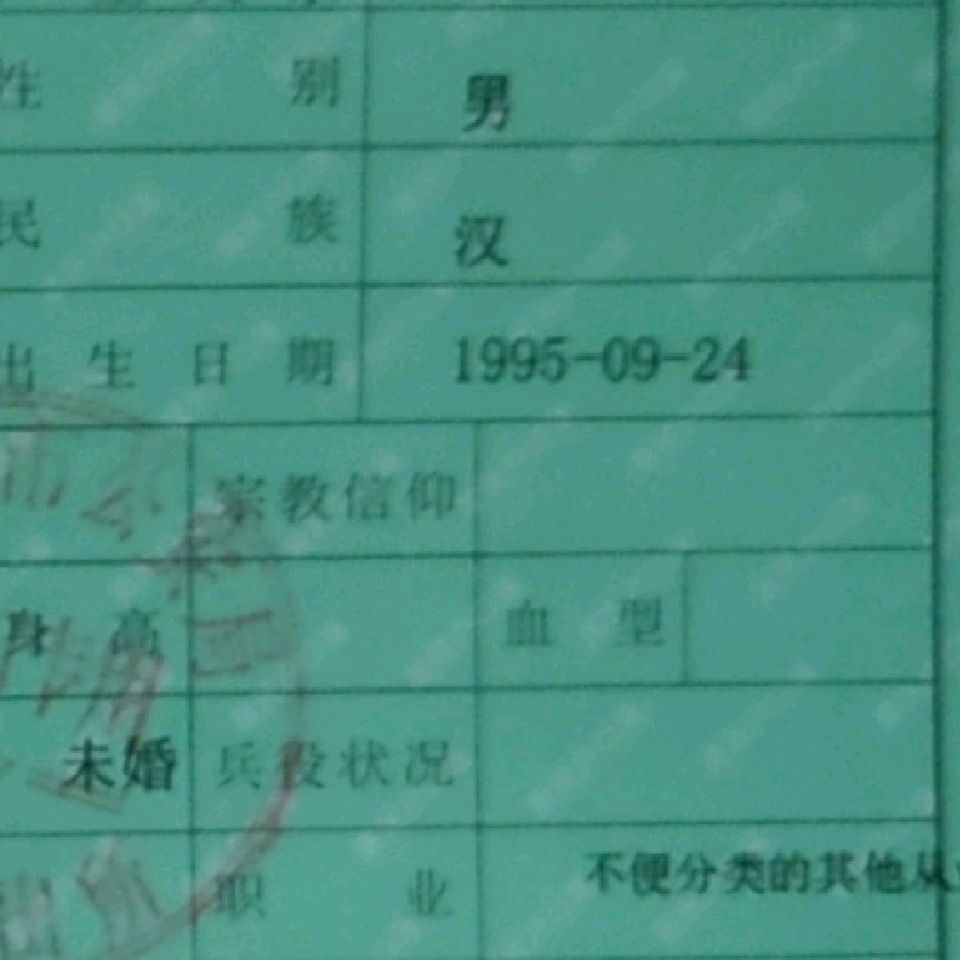 性 别 男
民 族 汉
出生日期 1995-09-24
宗教信仰
身高 血型
未婚 兵役状况
职业 不便分类的其他从